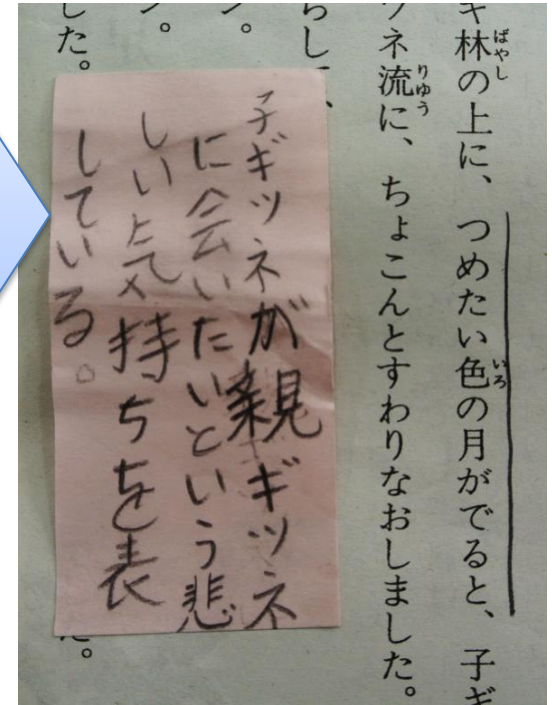 キ林の上に、つめたい色の月がでると、子ギ
ばやし
いろ
ツネ流に、ちょこんとすわりなおしました。
りゅう
らして、
ン。
ン。
した。
た。
子ギツネが親ギツネ
に会いたいという悲
しい気持ちを表
している。